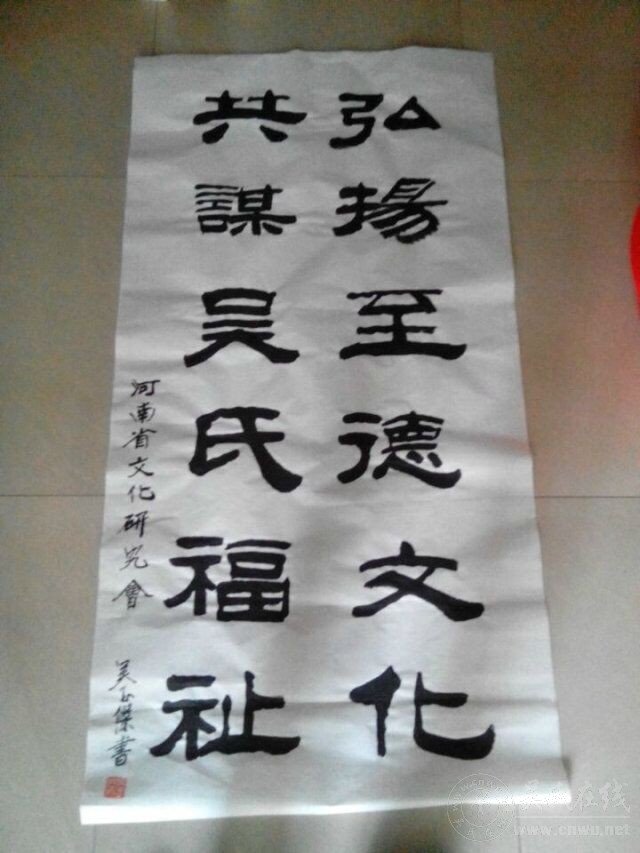 弘揚至德文化
共謀吴氏福祉
河南省文化研究會
吴正傑書
www.cnwu.net